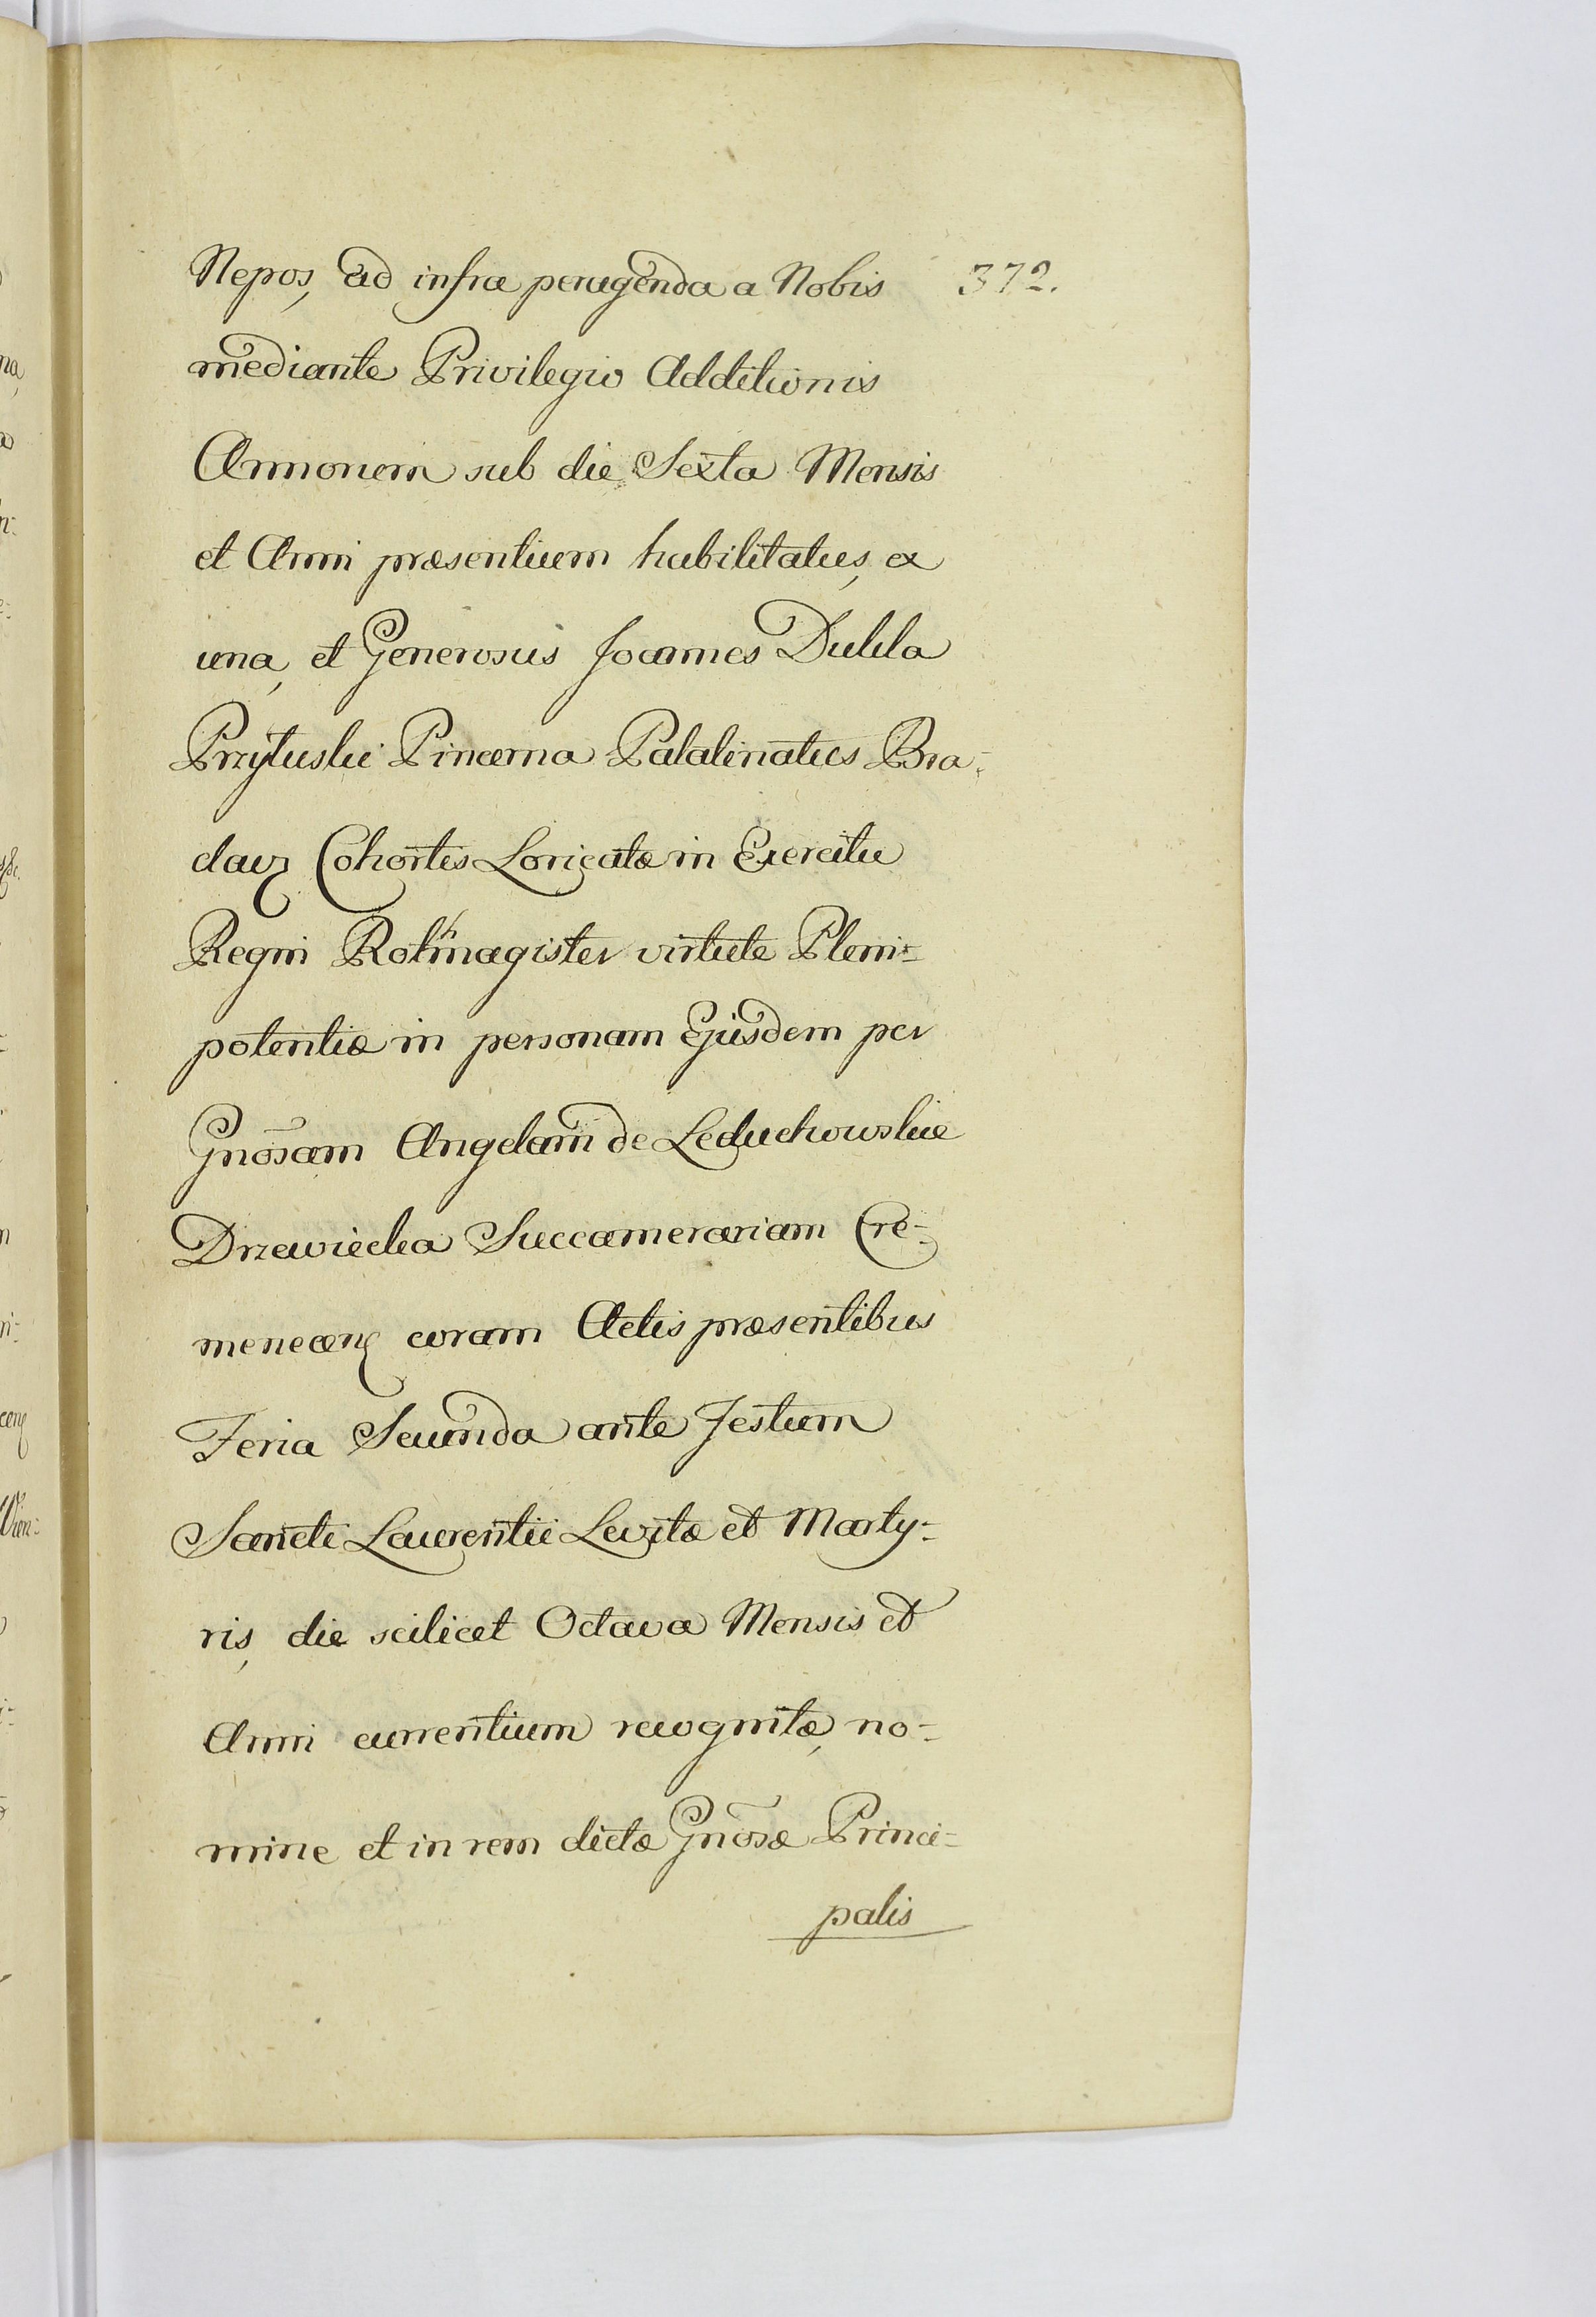 Nepos, ad infra peragenda a Nobis 372.
mediante Privilegio Additionis
Annorum sub die Sexta Mensis
et Anni præsentium habilitatus, ex
una, et Generosus Joannes Dulila
Przyłuski Pincerna Palatinatus Bra-
clavz Cohortis Loricatæ in Exercitu
Regni Rottmagister virtute Pleni=
potentiæ in personam Ejusdem per
Gnõsam Angelam de Leduchowskie
Drzewiecka Succamerariam Cre=
menecenę coram Actis præsentibus
Feria Secunda ante Festum
Sancti Laurentii Levitæ et Marty=
ris, die scilicet Octava Mensis et
Anni currentium recognitæ, no=
mine et in rem dictæ Gnõsæ Princi=
palis